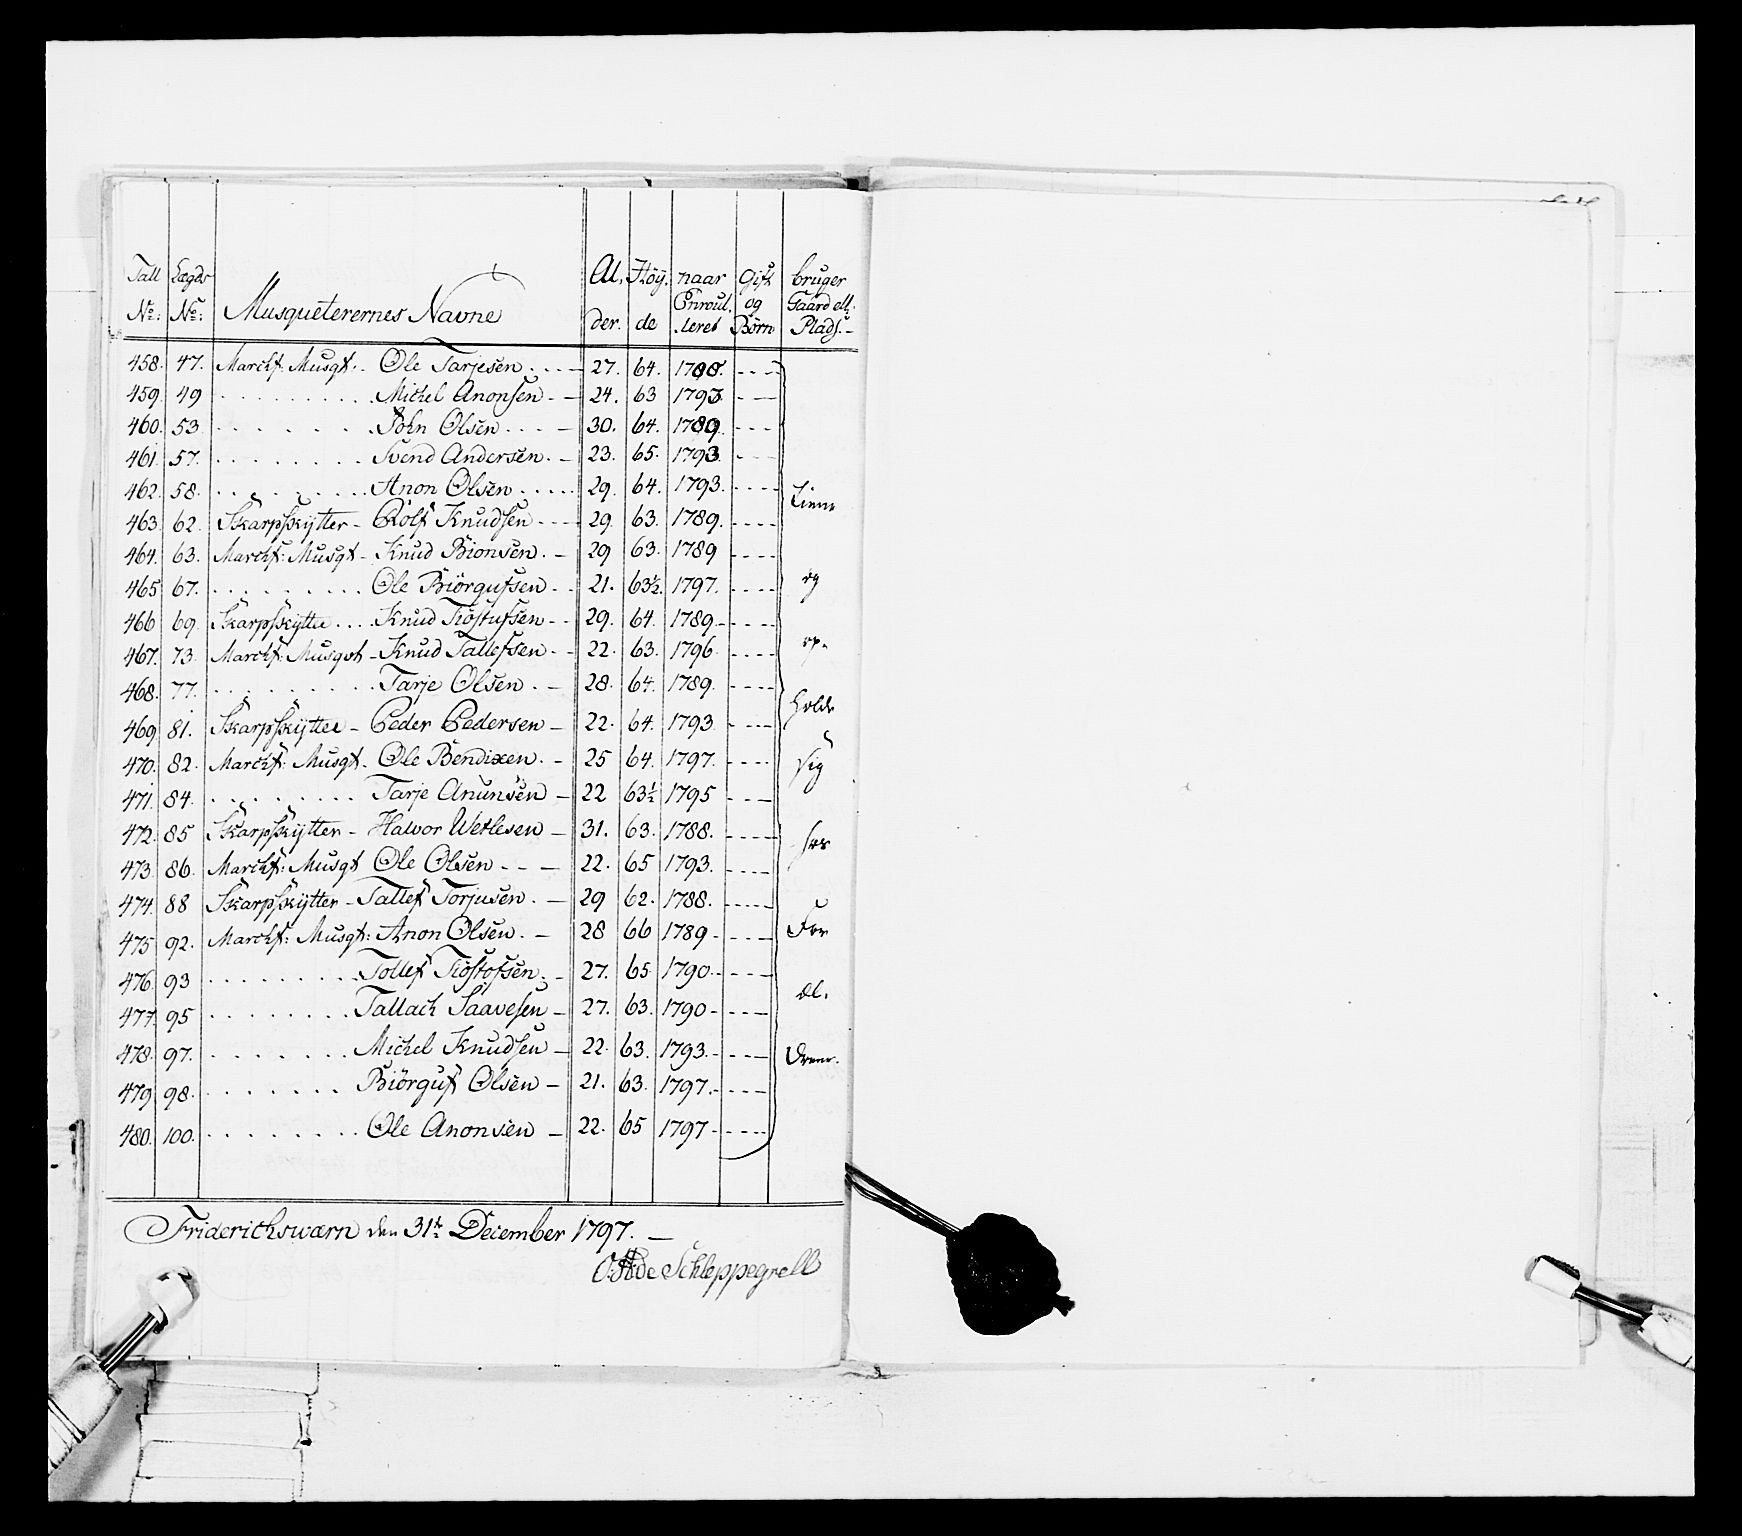 Tall No: Lægds No: Musqueterernes Navne Al, der. Höÿ, de naar Enroul, leret Gift og Börn bruger Gaard ell: Plads. -
458. 47. Marchf: Musqt. - Ole Tarjesen . . . - 27. 64. 1788. - - - -
459. 49 . . . . . . . . . . Michel Anonsen - - 24. 63 1793 - - -
460. 53. . . . . . . . John Olsen . . . - 30. 64. 1789. - - -
461. 57. . . . . . . . . Svend Andersen. - 23. 65. 1793. - - -
462. 58. . . . . . . . . Anon Olsen . . . . . 29. 64. 1793. - - - -
463. 62. Skarpskÿtter - Rolf Knudsen - - - - 29. 63. 1789. - - - -
464. 63. Marchf: Musqt - Knud Bionsen. - 29 63. 1789 - - - -
465 67. . . . . . . . . . Ole Biörgufsen - - 21. 63½. 1797. - - - -
466 69. Skarpskÿtter . . . . Knud Tiöstufsen - - 29. 64. 1789 - - - - -
467. 73. Marchf: Musqvt - Knud Tallefsen - - 22. 63. 1796 - - - -
468. 77. . . . . . . . . . . Tarje Olsen . - 28. 64. 1789. - - - -
469. 81. Skarpskÿtter - Peder Pedersen - 22. 64. 1793 - - - -
470. 82. Marchf: Musqt - Ole Bendixen. - 25 64. 1797. - - - -
471. 84. . . . . . . . . . Tarje Anunsen - 22 63½ 1795 - - -
472. 85 Skarpskÿtter - Halvor Wetlesen - 31. 63. 1788. - - - - -
473. 86. Marchf: Musqt Ole Olsen - - - 22. 65 1793. - - - -
474. 88 Skarpskÿtter - Tallef Torjusen . - 29 62. 1788. - - - - -
475 92. Marchf: Musqt: Anon Olsen. - 28 66 1789 - - - - -
476. 93 . . . . . . . . . Tollef Tiöstofsen. - 27. 65. 1790 - - - - -
477. 95 . . . . . . . . Tallach Saavesen - 27. 63. 1790 - - - - -
478. 97. . . . . . . . . Michel Knudsen - 22. 63. 1793. - - - -
479. 98. . . . . . . . Biörguf Olsen - 21. 63. 1797. - - - -
480. 100. . . . . . . . . Ole Anonsen - 22. 65 1797 - - - - -
tiene
og
op-
holde
sig
hos
For
æl,
drene.
Friderichsværn den 31te December 1797. -
de Schleppegrell